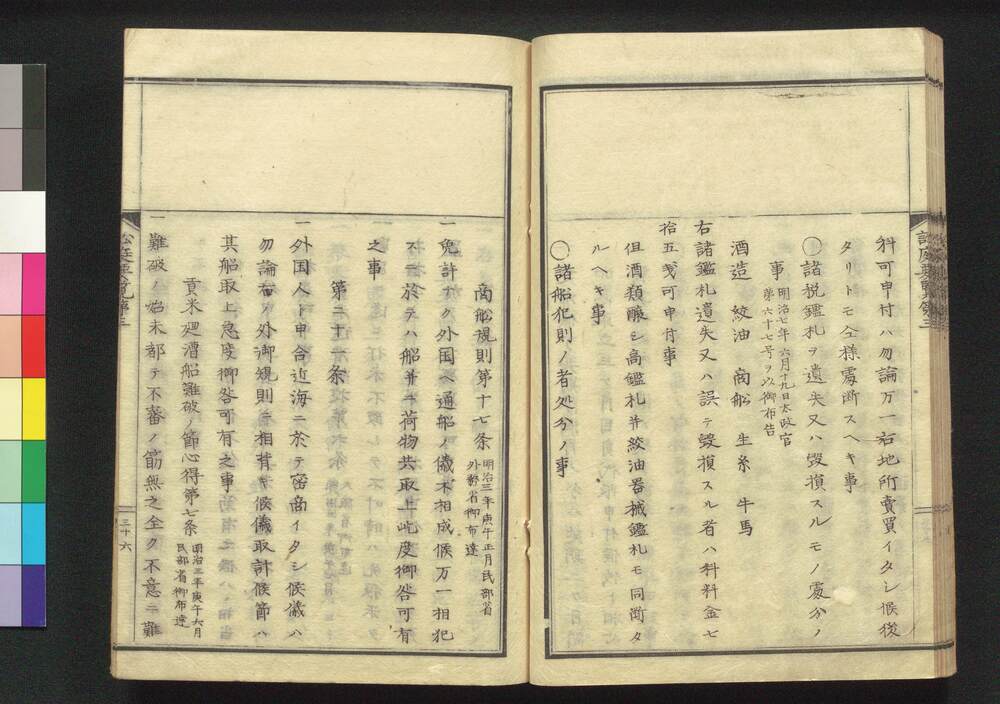 科可申付ハ勿論万一右地所賣買イタシ候後
タリトモ仝様處断スヘキ事
○諸税鑑札ヲ遺失又ハ毀損スルモノ處分ノ
事 明治七年六月十九日太政官
第六十七号ヲ以御布告
酒造 絞油 商舩 生糸 牛馬
右諸鑑札遺失又ハ誤テ毀損スル者ハ科料金七
拾五戔可申付事
但酒類醸シ高鑑札并絞油器械鑑札モ同断タ
ルヘキ事
○諸船犯則ノ者処分ノ事
商舩規則第十七条 明治三年庚午正月民部省
外務省御布達
一免計ナク外国ヘ通船ノ儀不相成候万一相犯
スニ於テハ船并ニ荷物共取上屹度御咎可有
之事
第二十一条
一外国人ト申合近海ニ於テ密商イタシ候儀ハ
勿論右ノ外御規則ニ相背キ候儀取計候節ハ
其船取上急度御咎可有之事
貢米廻漕船難破ノ節心得第七条 明治三年庚午六月
民部省御布達
一難破ノ始末都テ不審ノ筋無之全ク不意ニ難
三十六